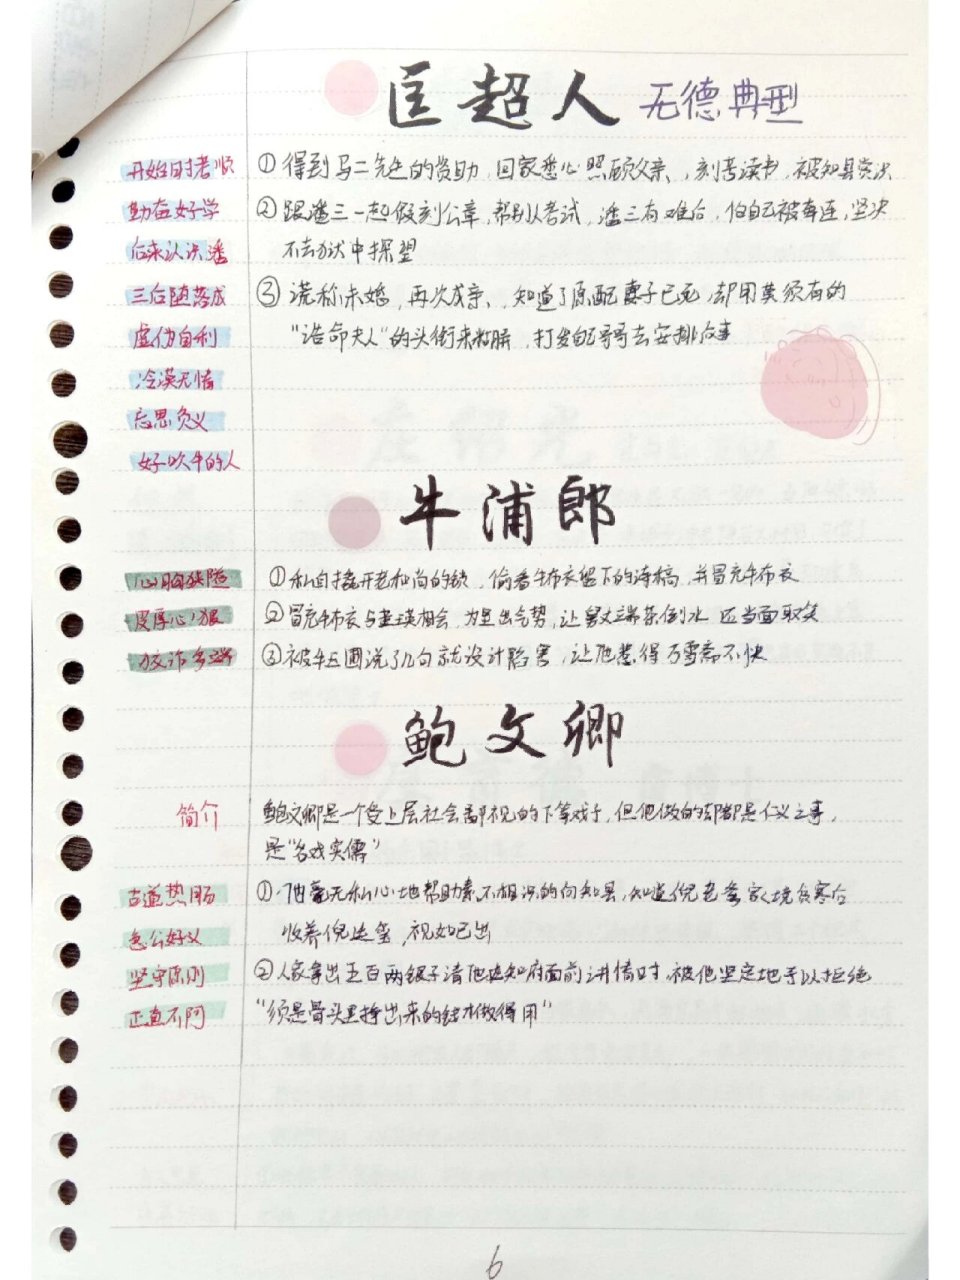 匡超人 无德典型
开始时孝顺
勤奋好学
后来认识潘
三后堕落成
虚伪自利
冷漠无情
忘恩负义
好吹牛的人
①得到马二先生的资助，回家悉心照顾父亲，刻苦读书，被知县赏识
②跟潘三一起假刻公章，帮别人考试，潘三有难后，怕自己被牵连，坚决
不去狱中探望
③谎称未婚，再次成亲，知道了原配妻子已死，却用莫须有的
“诰命夫人”的头衔来粉饰，打发自己哥哥去安排后事
牛浦郎
心胸狭隘
皮厚心狠
狡诈多端
①私自撬开老和尚的锁，偷看牛布衣留下的诗稿，并冒充牛布衣
②冒充牛布衣与董瑛相会，为显出气势，让舅丈端茶倒水 还当面取笑
③被牛玉圃说了几句就设计陷害，让他惹得万雪斋不快
鲍文卿
简介
鲍文卿是一个受上层社会鄙视的下等戏子，但他做的却都是仁义之事，
是“名戏实儒”
古道热肠
急公好义
坚守原则
正直不阿
①毫无私心地帮助素不相识的向知县，知道倪老爹家境贫寒后
收养倪廷玺，视如己出
②人家拿出五百两银子请他在知府面前讲情时，被他坚定地予以拒绝
“须是骨头里挣出来的钱才做得用”
6